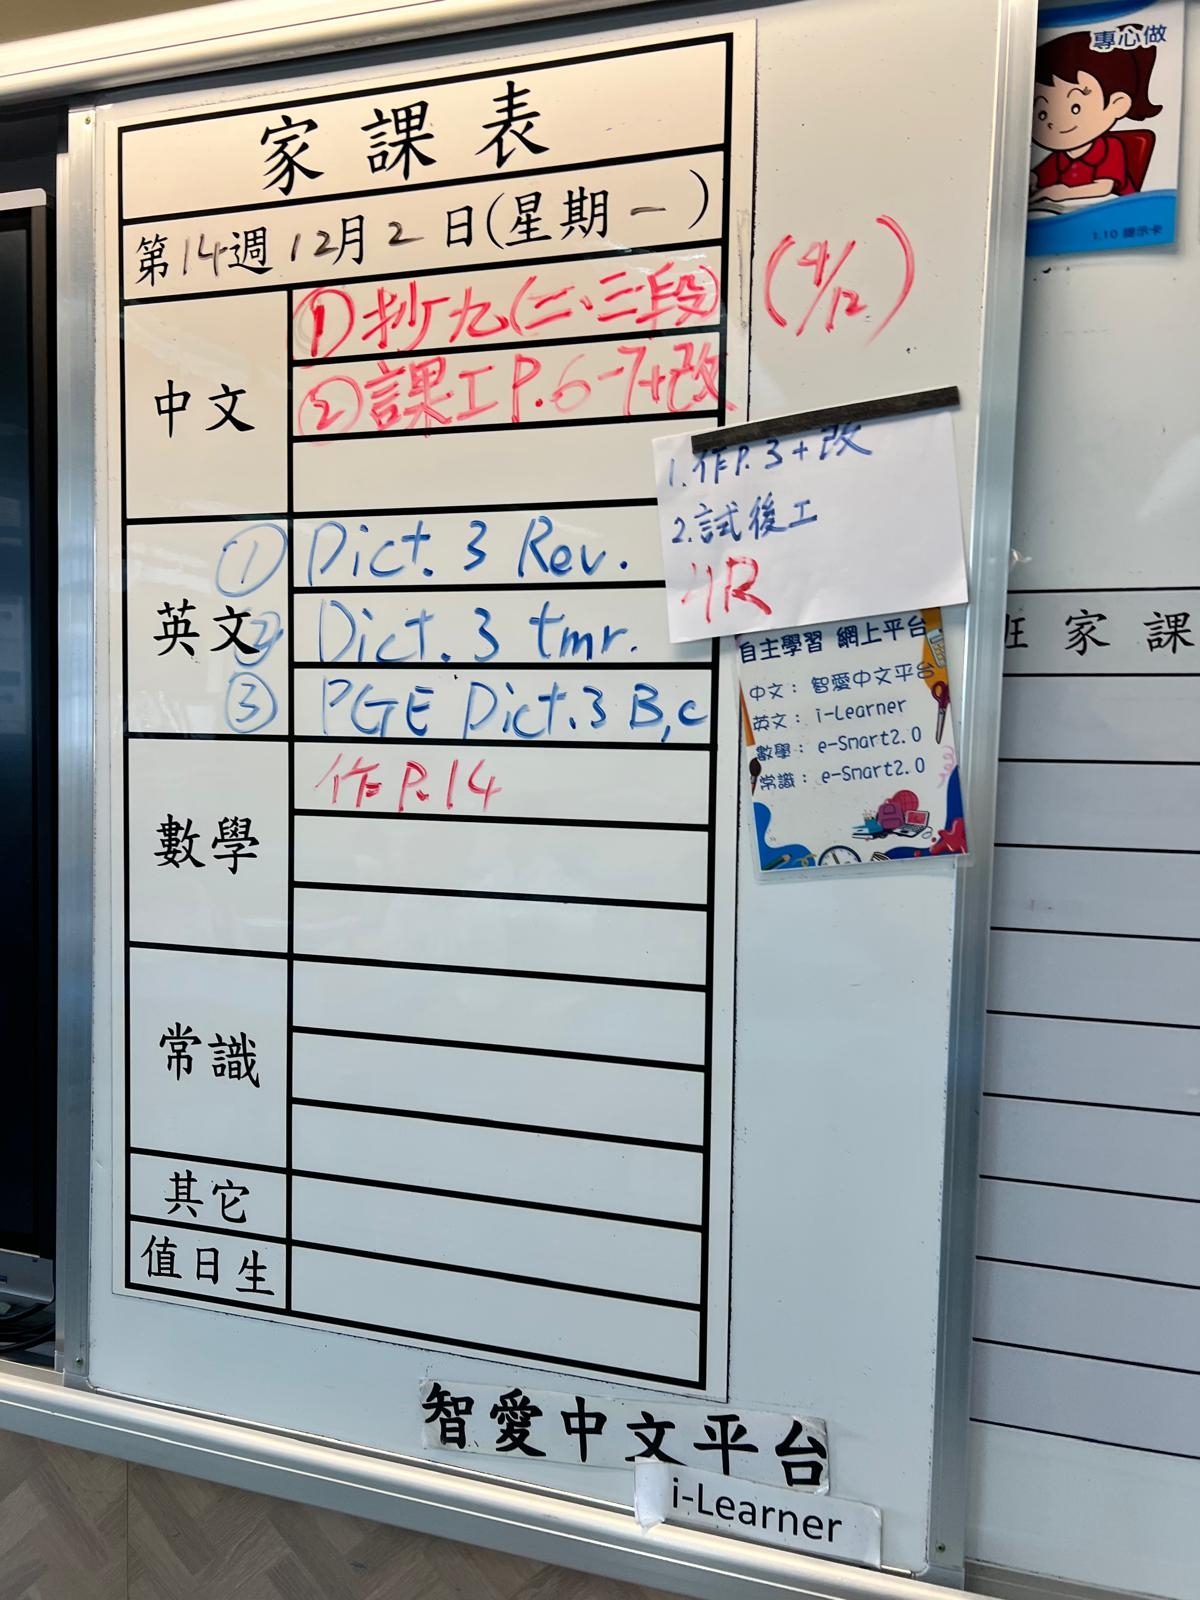 家課表
第14週12月2日(星期一)
中文
①抄九(二、三段) (4/12)
②課工P.6-7+改
英文
① Dict. 3 Rev.
② Dict. 3 tmr.
③ PGE Dict.3 B,C
數學
作P.14
常識
其它
值日生
1.作P.3+改
2.試後工
自主學習 網上平台
中文：智愛中文平台
英文：i-Learner
數學：e-Smart2.0
常識：e-Smart2.0
智愛中文平台
i-Learner
專心做
1.10 提示卡
班家課